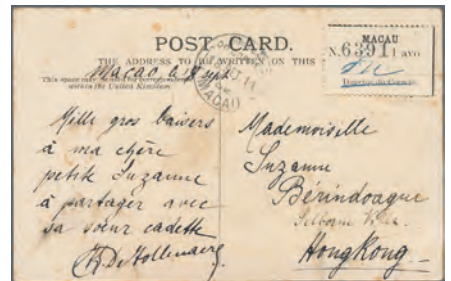 POST CARD.
THE ADDRESS TO BE WRITTEN ON THIS
This space may
within the United Kingdom.
Macao le
MACAU
MACAU
N. 6391 1 avo
Mille gros baisers
à ma chère
petite Suzanne
à partager avec
sa soeur cadette
Mademoiselle
Suzanne
Bérindoague
Hong Kong